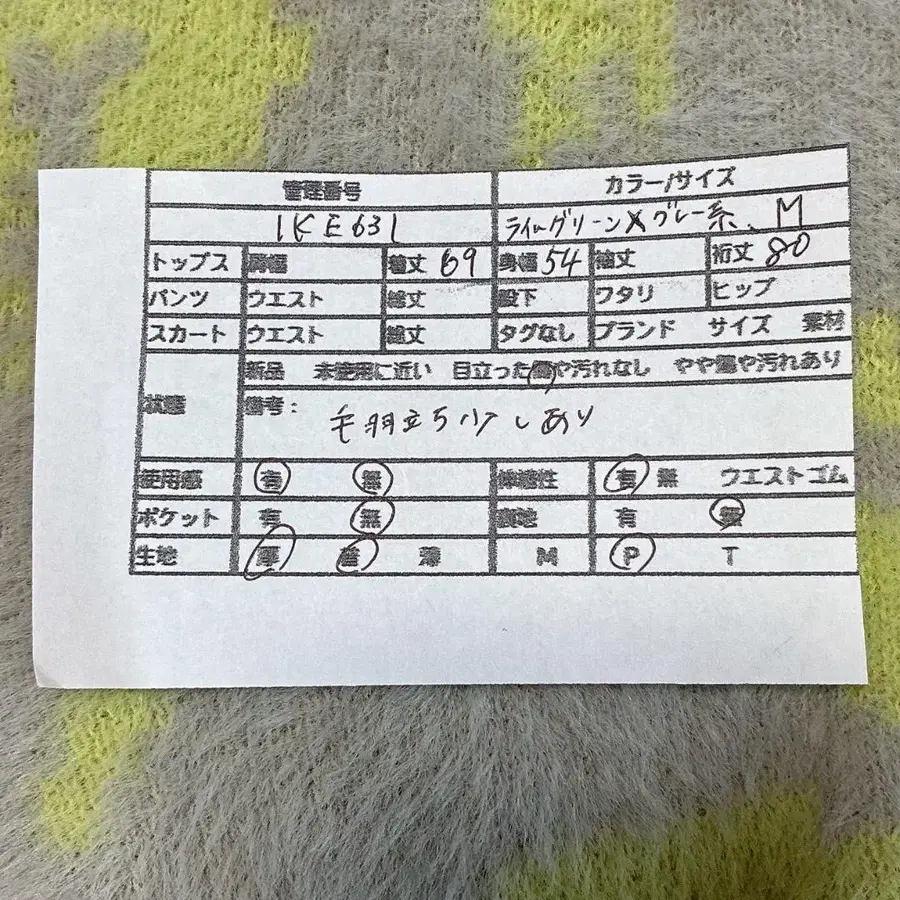 管理番号 カラー/サイズ
IKE631 ライムグリーン×グレー系、M
トップス 肩幅 着丈 69 身幅 54 袖丈 裄丈 80
パンツ ウエスト 総丈 股下 ワタリ ヒップ
スカート ウエスト 総丈 タグなし ブランド サイズ 素材
状態 新品 未使用に近い 目立った傷や汚れなし やや傷や汚れあり
備考: 毛羽立ち少しあり
使用感 有 無 伸縮性 有 無 ウエストゴム
ポケット 有 無 裏地 有 無
生地 厚 普 薄 M P T